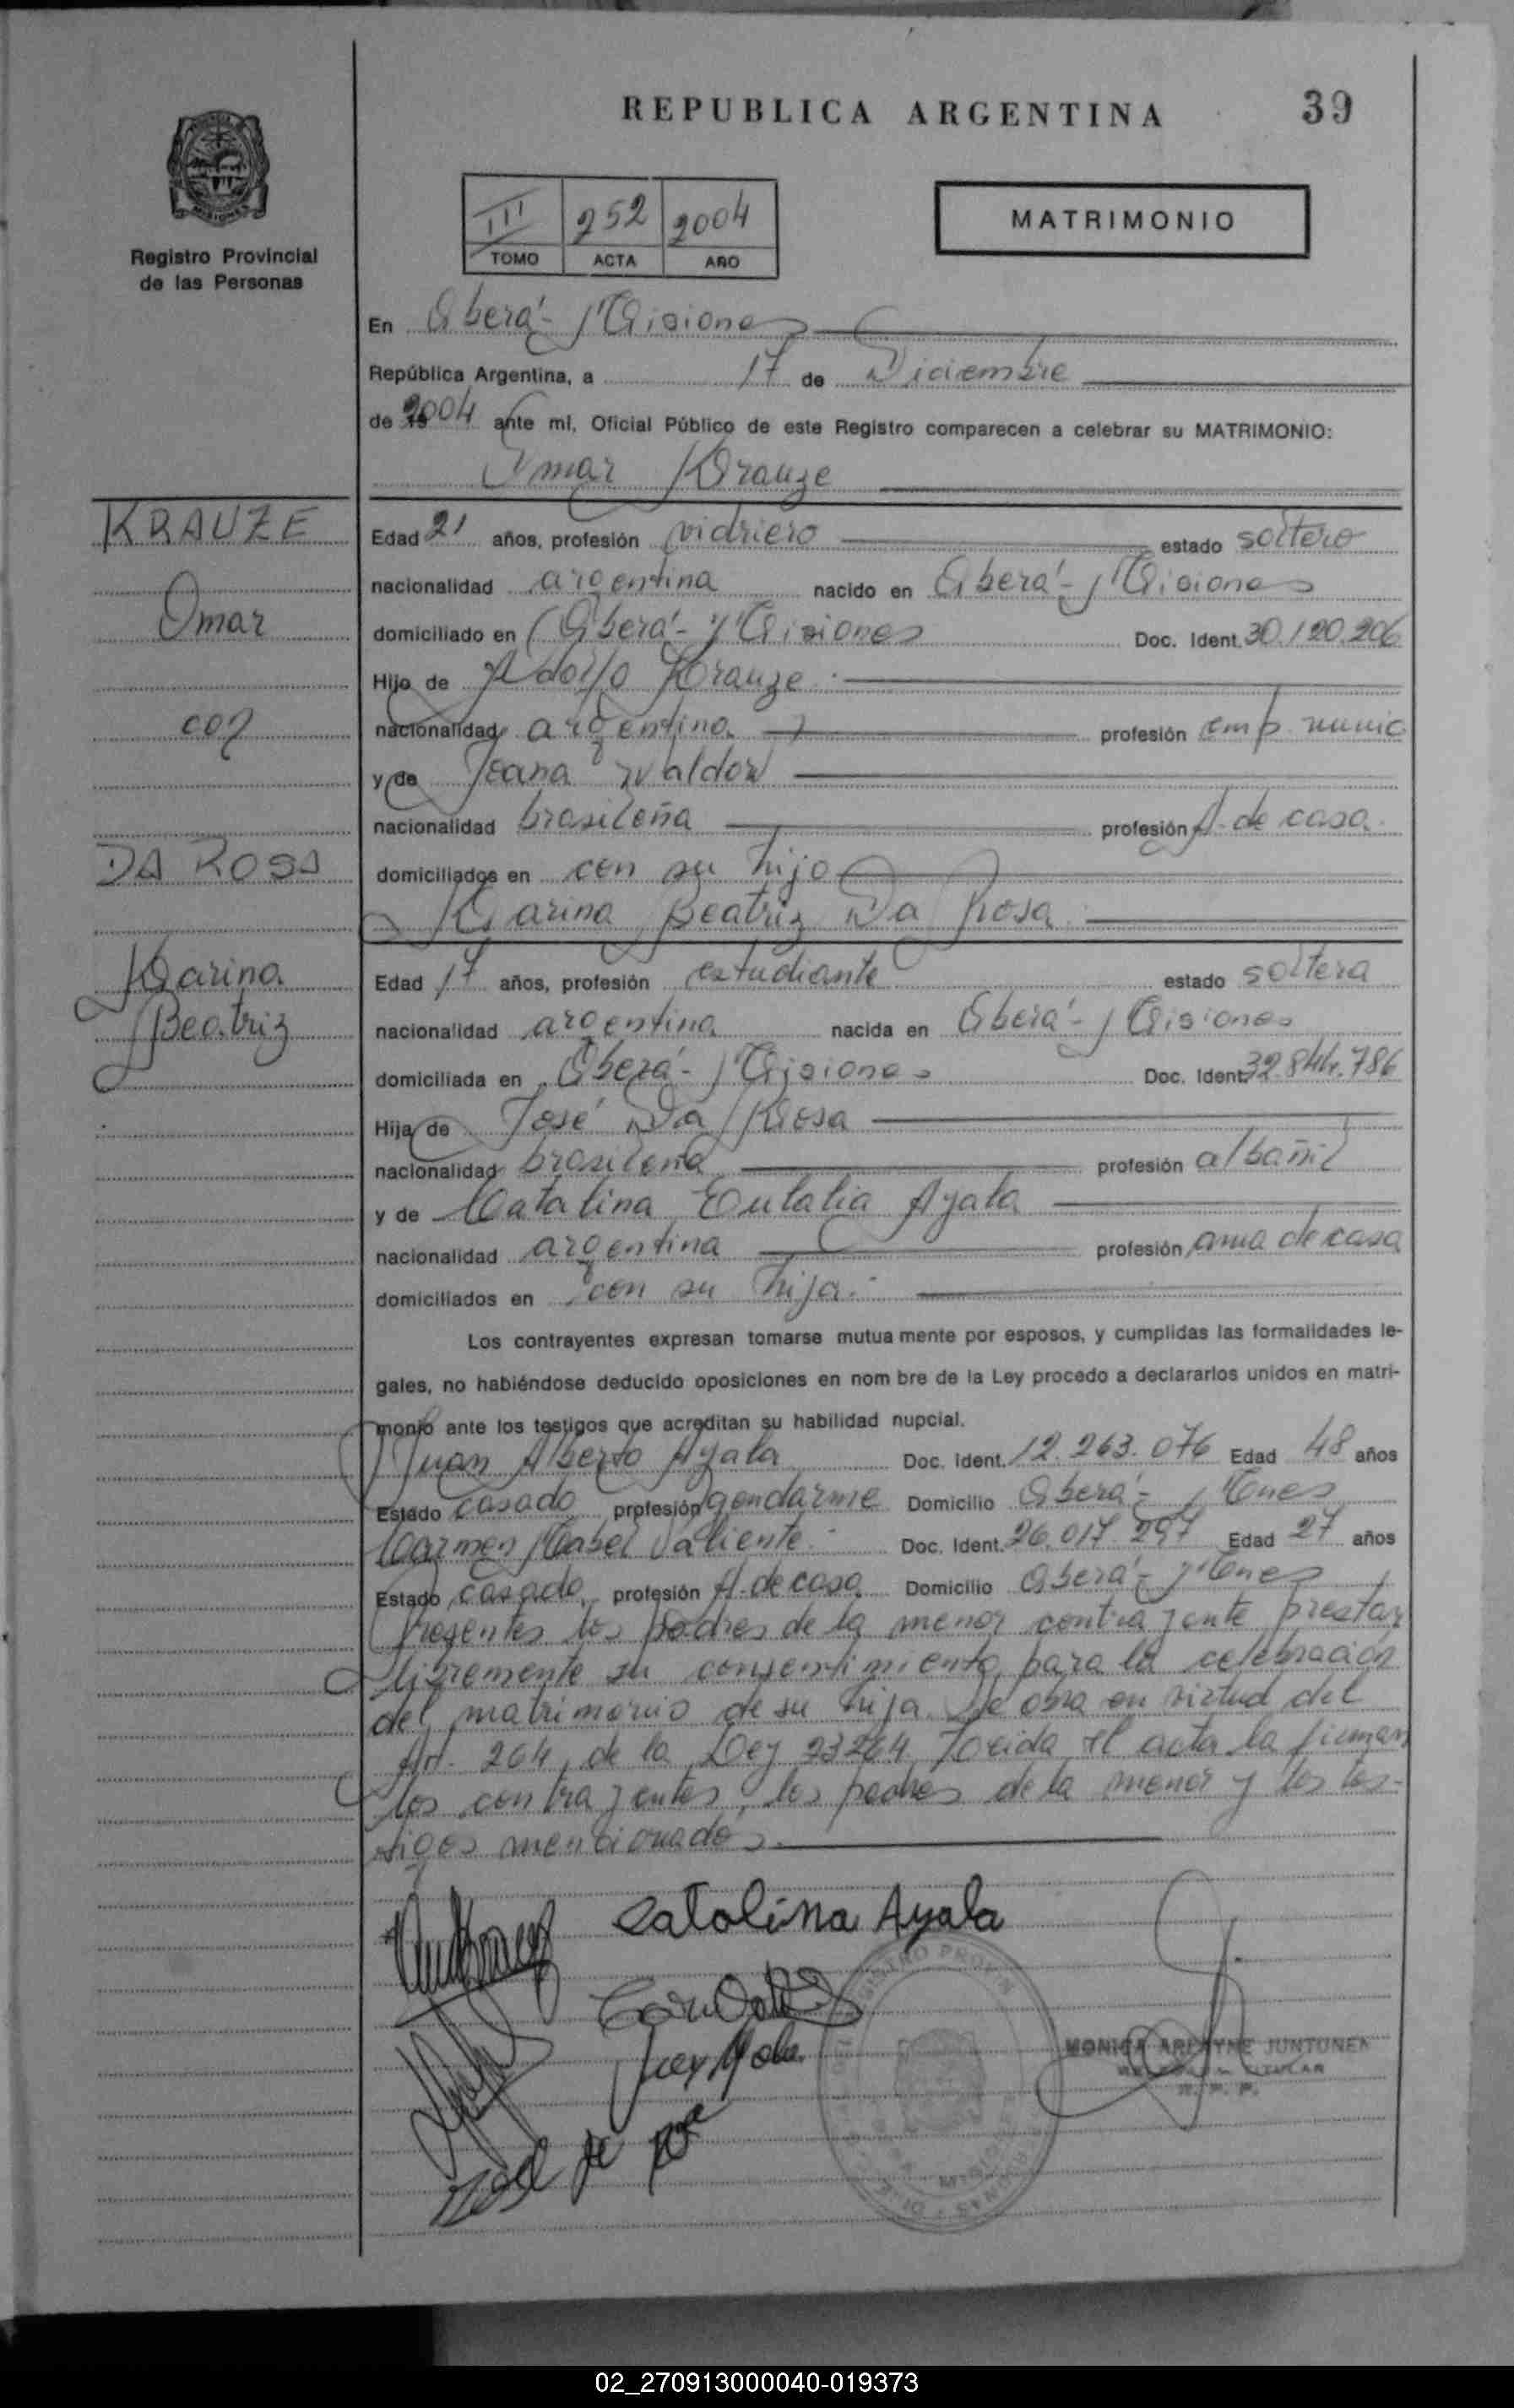 REPUBLICA ARGENTINA
39
Registro Provincial
de las Personas
III 252 2004
TOMO ACTA AÑO
MATRIMONIO
En Oberá - Misiones
República Argentina, a 17 de Diciembre
de 2004 ante mí, Oficial Público de este Registro comparecen a celebrar su MATRIMONIO:
Omar Krauze
KRAUZE
Omar
con
DA ROSA
Karina
Beatriz
Edad 21 años, profesión vidriero estado soltero
nacionalidad argentina nacido en Oberá - Misiones
domiciliado en Oberá - Misiones Doc. Ident. 30.120.206
Hijo de Adolfo Krauze
nacionalidad argentina profesión emp. munic
y de Joana Waldow
nacionalidad brasileña profesión A. de casa
domiciliados en con su hijo
Karina Beatriz Da Rosa
Edad 17 años, profesión estudiante estado soltera
nacionalidad argentina nacida en Oberá - Misiones
domiciliada en Oberá - Misiones Doc. Ident. 32.844.786
Hija de José Da Rosa
nacionalidad brasileña profesión albañil
y de Catalina Eulalia Ayala
nacionalidad argentina profesión ama de casa
domiciliados en con su hija.
Los contrayentes expresan tomarse mutua mente por esposos, y cumplidas las formalidades le-
gales, no habiéndose deducido oposiciones en nom bre de la Ley procedo a declararlos unidos en matri-
monio ante los testigos que acreditan su habilidad nupcial.
Juan Alberto Ayala Doc. Ident. 12.263.076 Edad 48 años
Estado casado profesión gendarme Domicilio Oberá - Mnes
Carmen Mabel Valiente Doc. Ident. 26.017.297 Edad 27 años
Estado casada profesión A. de casa Domicilio Oberá - Mnes
Presentes los padres de la menor contrayente prestan
libremente su consentimiento para la celebración
del matrimonio de su hija. Se obra en virtud del
Art. 264 de la Ley 23264. Leída el acta la firman
los contrayentes, los padres de la menor y los tes-
tigos mencionados.
Catalina Ayala
MONICA ARLAYNE JUNTUNEN
TITULAR
R. P. P.
02_270913000040-019373